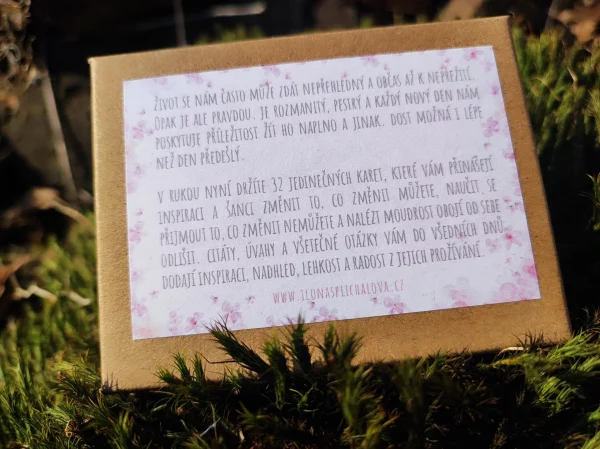 ŽIVOT SE NÁM ČASTO MŮŽE ZDÁT NEPŘEHLEDNÝ A OBČAS AŽ K NEPŘEŽITÍ.
OPAK JE ALE PRAVDOU. JE ROZMANITÝ, PESTRÝ A KAŽDÝ NOVÝ DEN NÁM
POSKYTUJE PŘÍLEŽITOST ŽÍT HO NAPLNO A JINAK. DOST MOŽNÁ I LÉPE
NEŽ DEN PŘEDEŠLÝ.
V RUKOU NYNÍ DRŽÍTE 32 JEDINEČNÝCH KARET, KTERÉ VÁM PŘINÁŠEJÍ
INSPIRACI A ŠANCI ZMĚNIT TO, CO ZMĚNIT MŮŽETE, NAUČIT SE
PŘIJMOUT TO, CO ZMĚNIT NEMŮŽETE A NALÉZT MOUDROST OBOJÍ OD SEBE
ODLIŠIT. CITÁTY, ÚVAHY A VŠETEČNÉ OTÁZKY VÁM DO VŠEDNÍCH DNŮ
DODAJÍ INSPIRACI, NADHLED, LEHKOST A RADOST Z JEJICH PROŽÍVÁNÍ.
WWW.ILONASPLICHALOVA.CZ